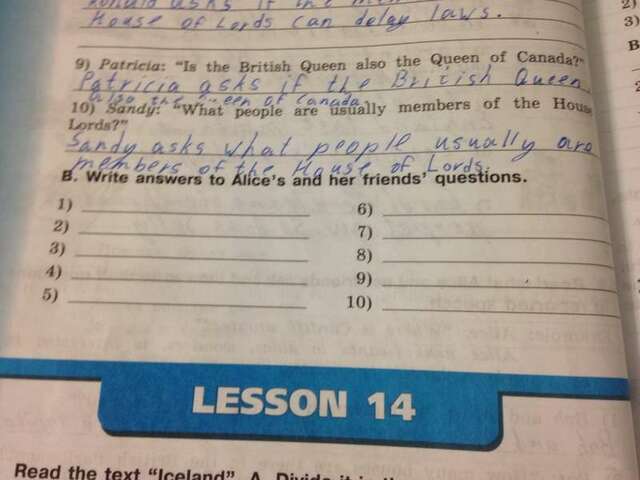 Ronald asks if the
House of Lords can delay laws.
9) Patricia: "Is the British Queen also the Queen of Canada?"
Patricia asks if the British Queen
also the Queen of Canada.
10) Sandy: "What people are usually members of the House
Lords?"
Sandy asks what people usually are
members of the House of Lords.
B. Write answers to Alice's and her friends' questions.
1)
2)
3)
4)
5)
6)
7)
8)
9)
10)
LESSON 14
Read the text "Iceland". A. Divide it
2)
3)
B